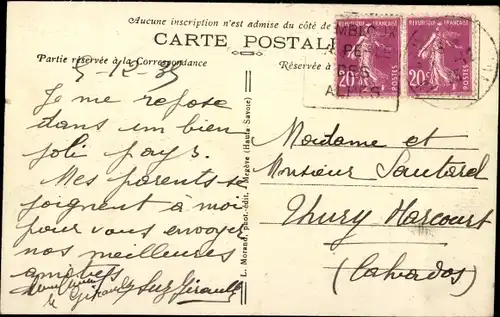 Aucune inscription n'est admise du côté de
CARTE POSTALE
Partie réservée à la Correspondance
Réservée à
RÉPUBLIQUE FRANÇAISE
20c
POSTES
RÉPUBLIQUE FRANÇAISE
20c
POSTES
DES
ALPES
5-12-35
Je me repose
dans un bien
joli pays.
Mes parents se
joignent à moi
pour vous envoyer
nos meilleures
amitiés
Suz. Girault
L. Morand, phot.-édit., Megève (Haute-Savoie)
Madame et
Monsieur Sautarel
Thury Harcourt
(Calvados)